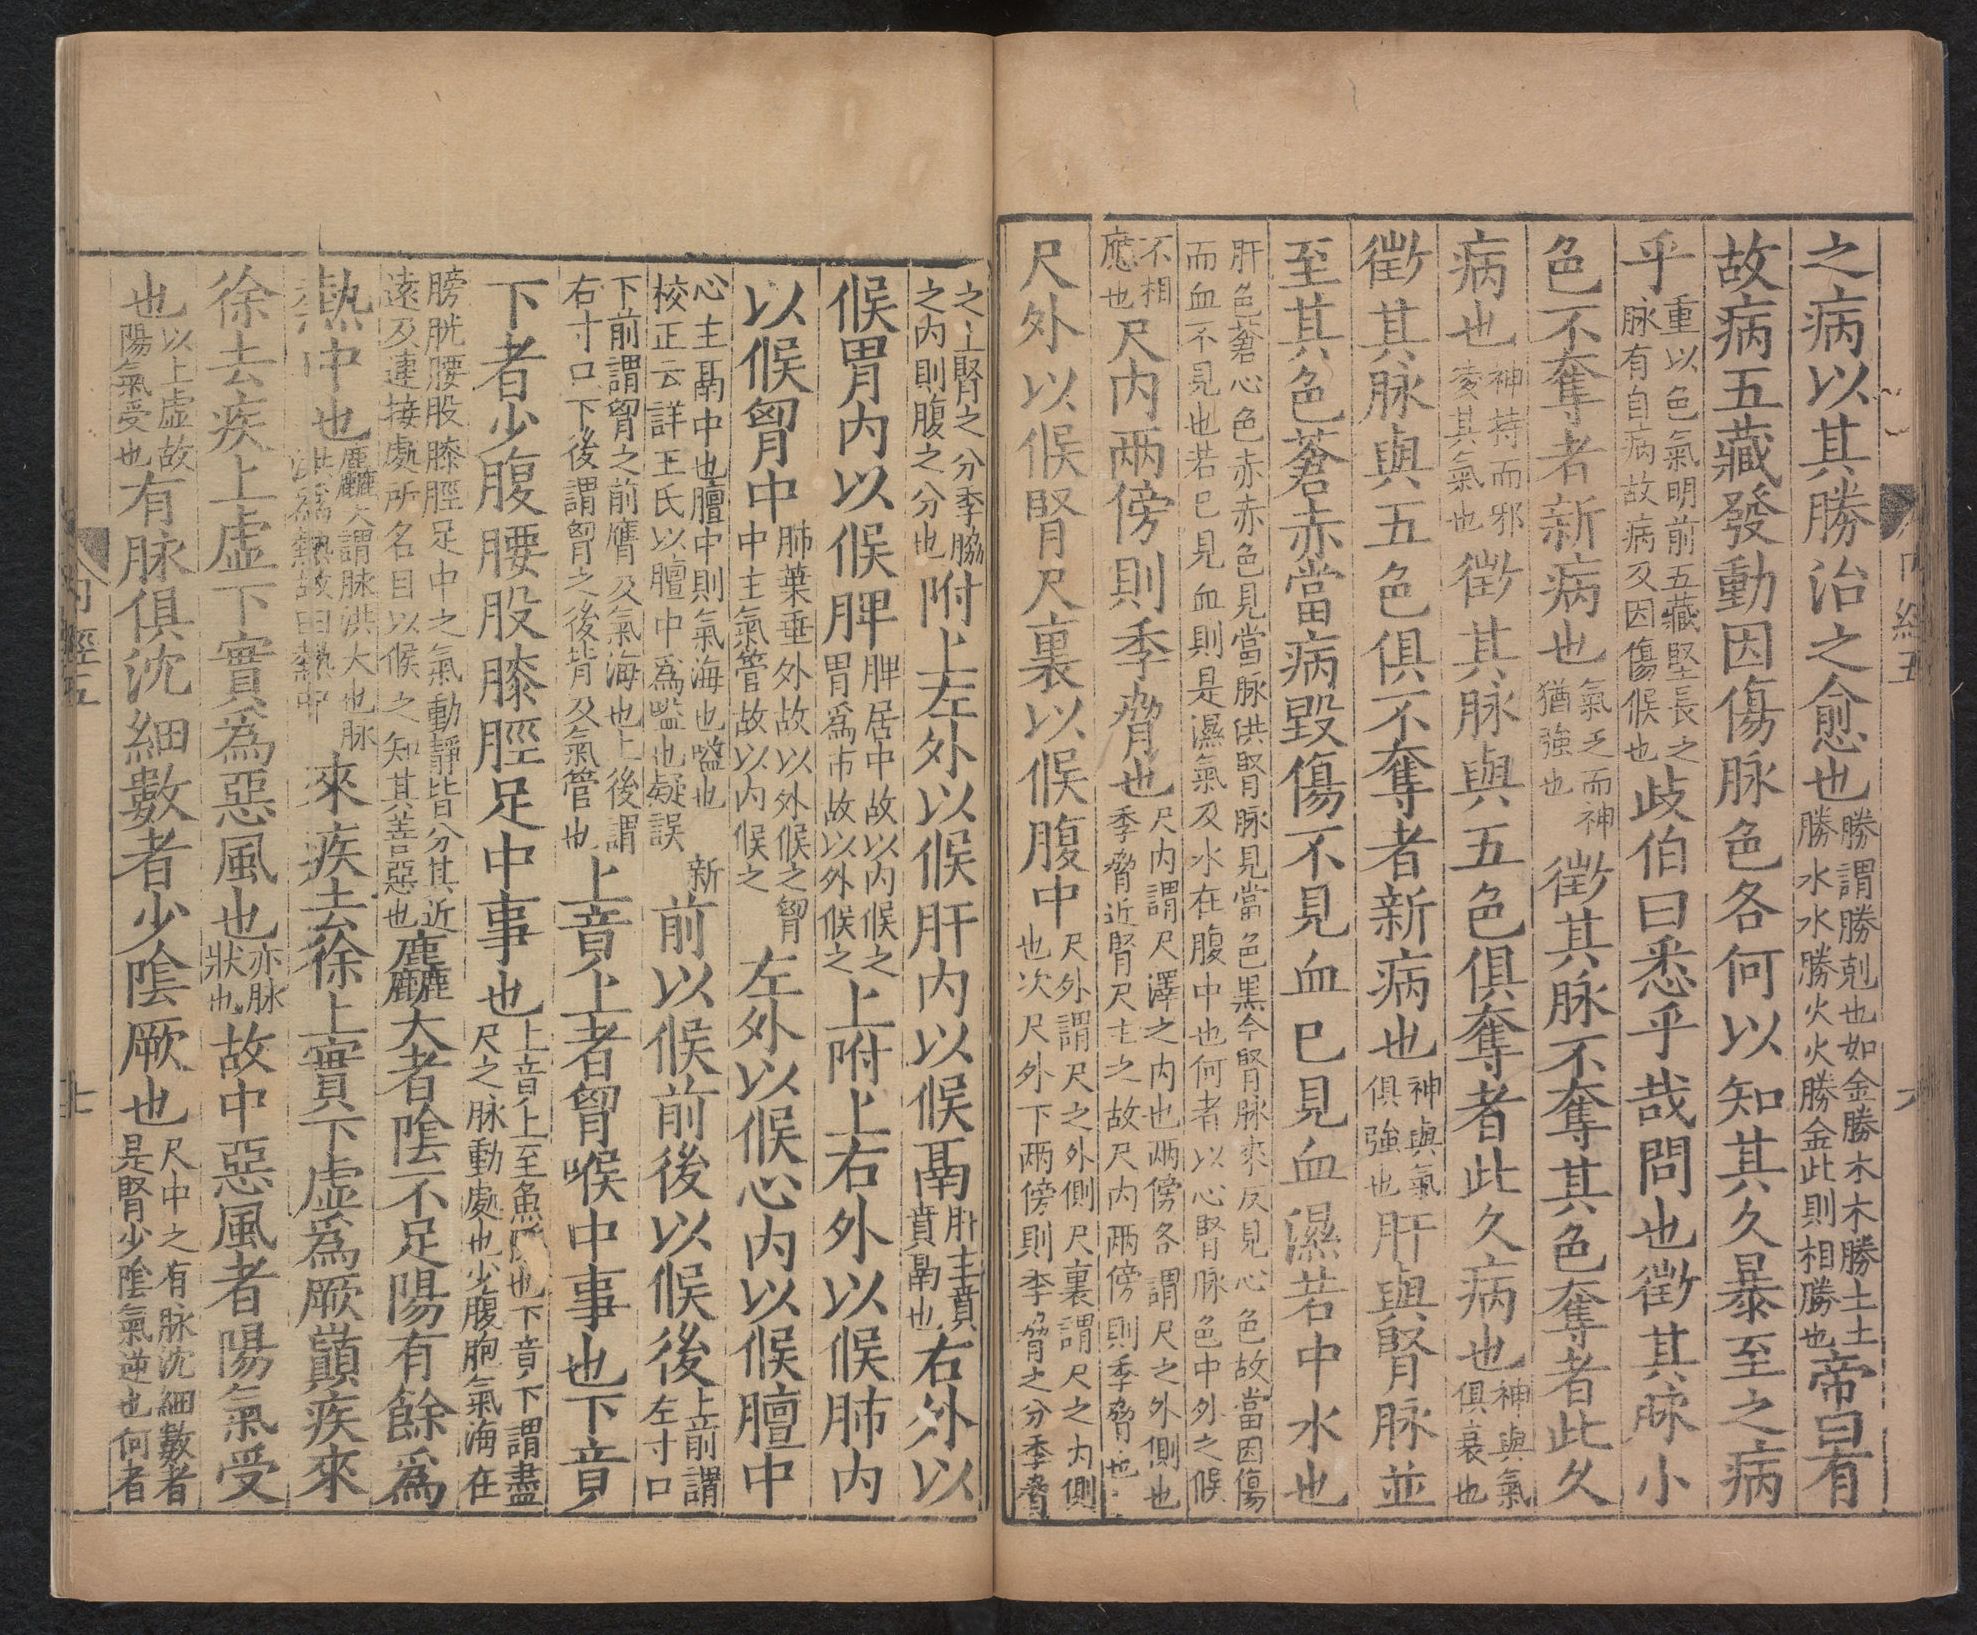 之病以其勝治之愈也勝謂勝剋也如金勝木木勝土土勝水水勝火火勝金此則相勝也帝曰有
故病五藏發動因傷脉色各何以知其久暴至之病
乎重以色氣明前五藏堅長之脉有自病故病及因傷候也歧伯曰悉乎哉問也徵其脉小
色不奪者新病也氣乏而神猶強也徵其脉不奪其色奪者此久
病也神持而邪凌其氣也徵其脉與五色俱奪者此久病也神與氣俱衰也
徵其脉與五色俱不奪者新病也神與氣俱強也肝與腎脉並
至其色蒼赤當病毀傷不見血已見血濕若中水也
肝色蒼心色赤赤色見當脉洪腎脉見當色黑今腎脉來反見心色故當因傷而血不見也若已見血則是濕氣及水在腹中也何者以心腎脉色中外之候
不相應也尺内兩傍則季脅也尺内謂尺澤之内也兩傍各謂尺之外側也季脅近腎尺主之故尺内兩傍則季脅也
尺外以候腎尺裏以候腹中尺外謂尺之外側尺裏謂尺之内側也次尺外下兩傍則季脅之分季脅
内經五
六
之上腎之分季脇之内則腹之分也附上左外以候肝内以候鬲肝主賁賁鬲也右外以
候胃内以候脾脾居中故以内候之胃爲市故以外候之上附上右外以候肺内
以候胷中肺葉垂外故以外候之胷中主氣管故以内候之左外以候心内以候膻中
心主鬲中也膻中則氣海也嗌也新校正云詳王氏以膻中爲嗌也疑誤前以候前後以候後上前謂左寸口
下前謂胷之前膺及氣海也上後謂右寸口下後謂胷之後背及氣管也上竟上者胷喉中事也下竟
下者少腹腰股膝脛足中事也上竟上至魚際也下竟下謂盡尺之脉動處也少腹胞氣海在
膀胱腰股膝脛足中之氣動靜皆分其近遠及連接處所名目以候之知其善惡也麤大者陰不足陽有餘爲
熱中也麤大謂脉洪大也脉洪爲熱故曰熱中來疾去徐上實下虛爲厥巔疾來
徐去疾上虛下實爲惡風也亦脉狀也故中惡風者陽氣受
也以上虛故陽氣受也有脉俱沈細數者少陰厥也尺中之有脉沈細數者是腎少陰氣逆也何者
内經五
七